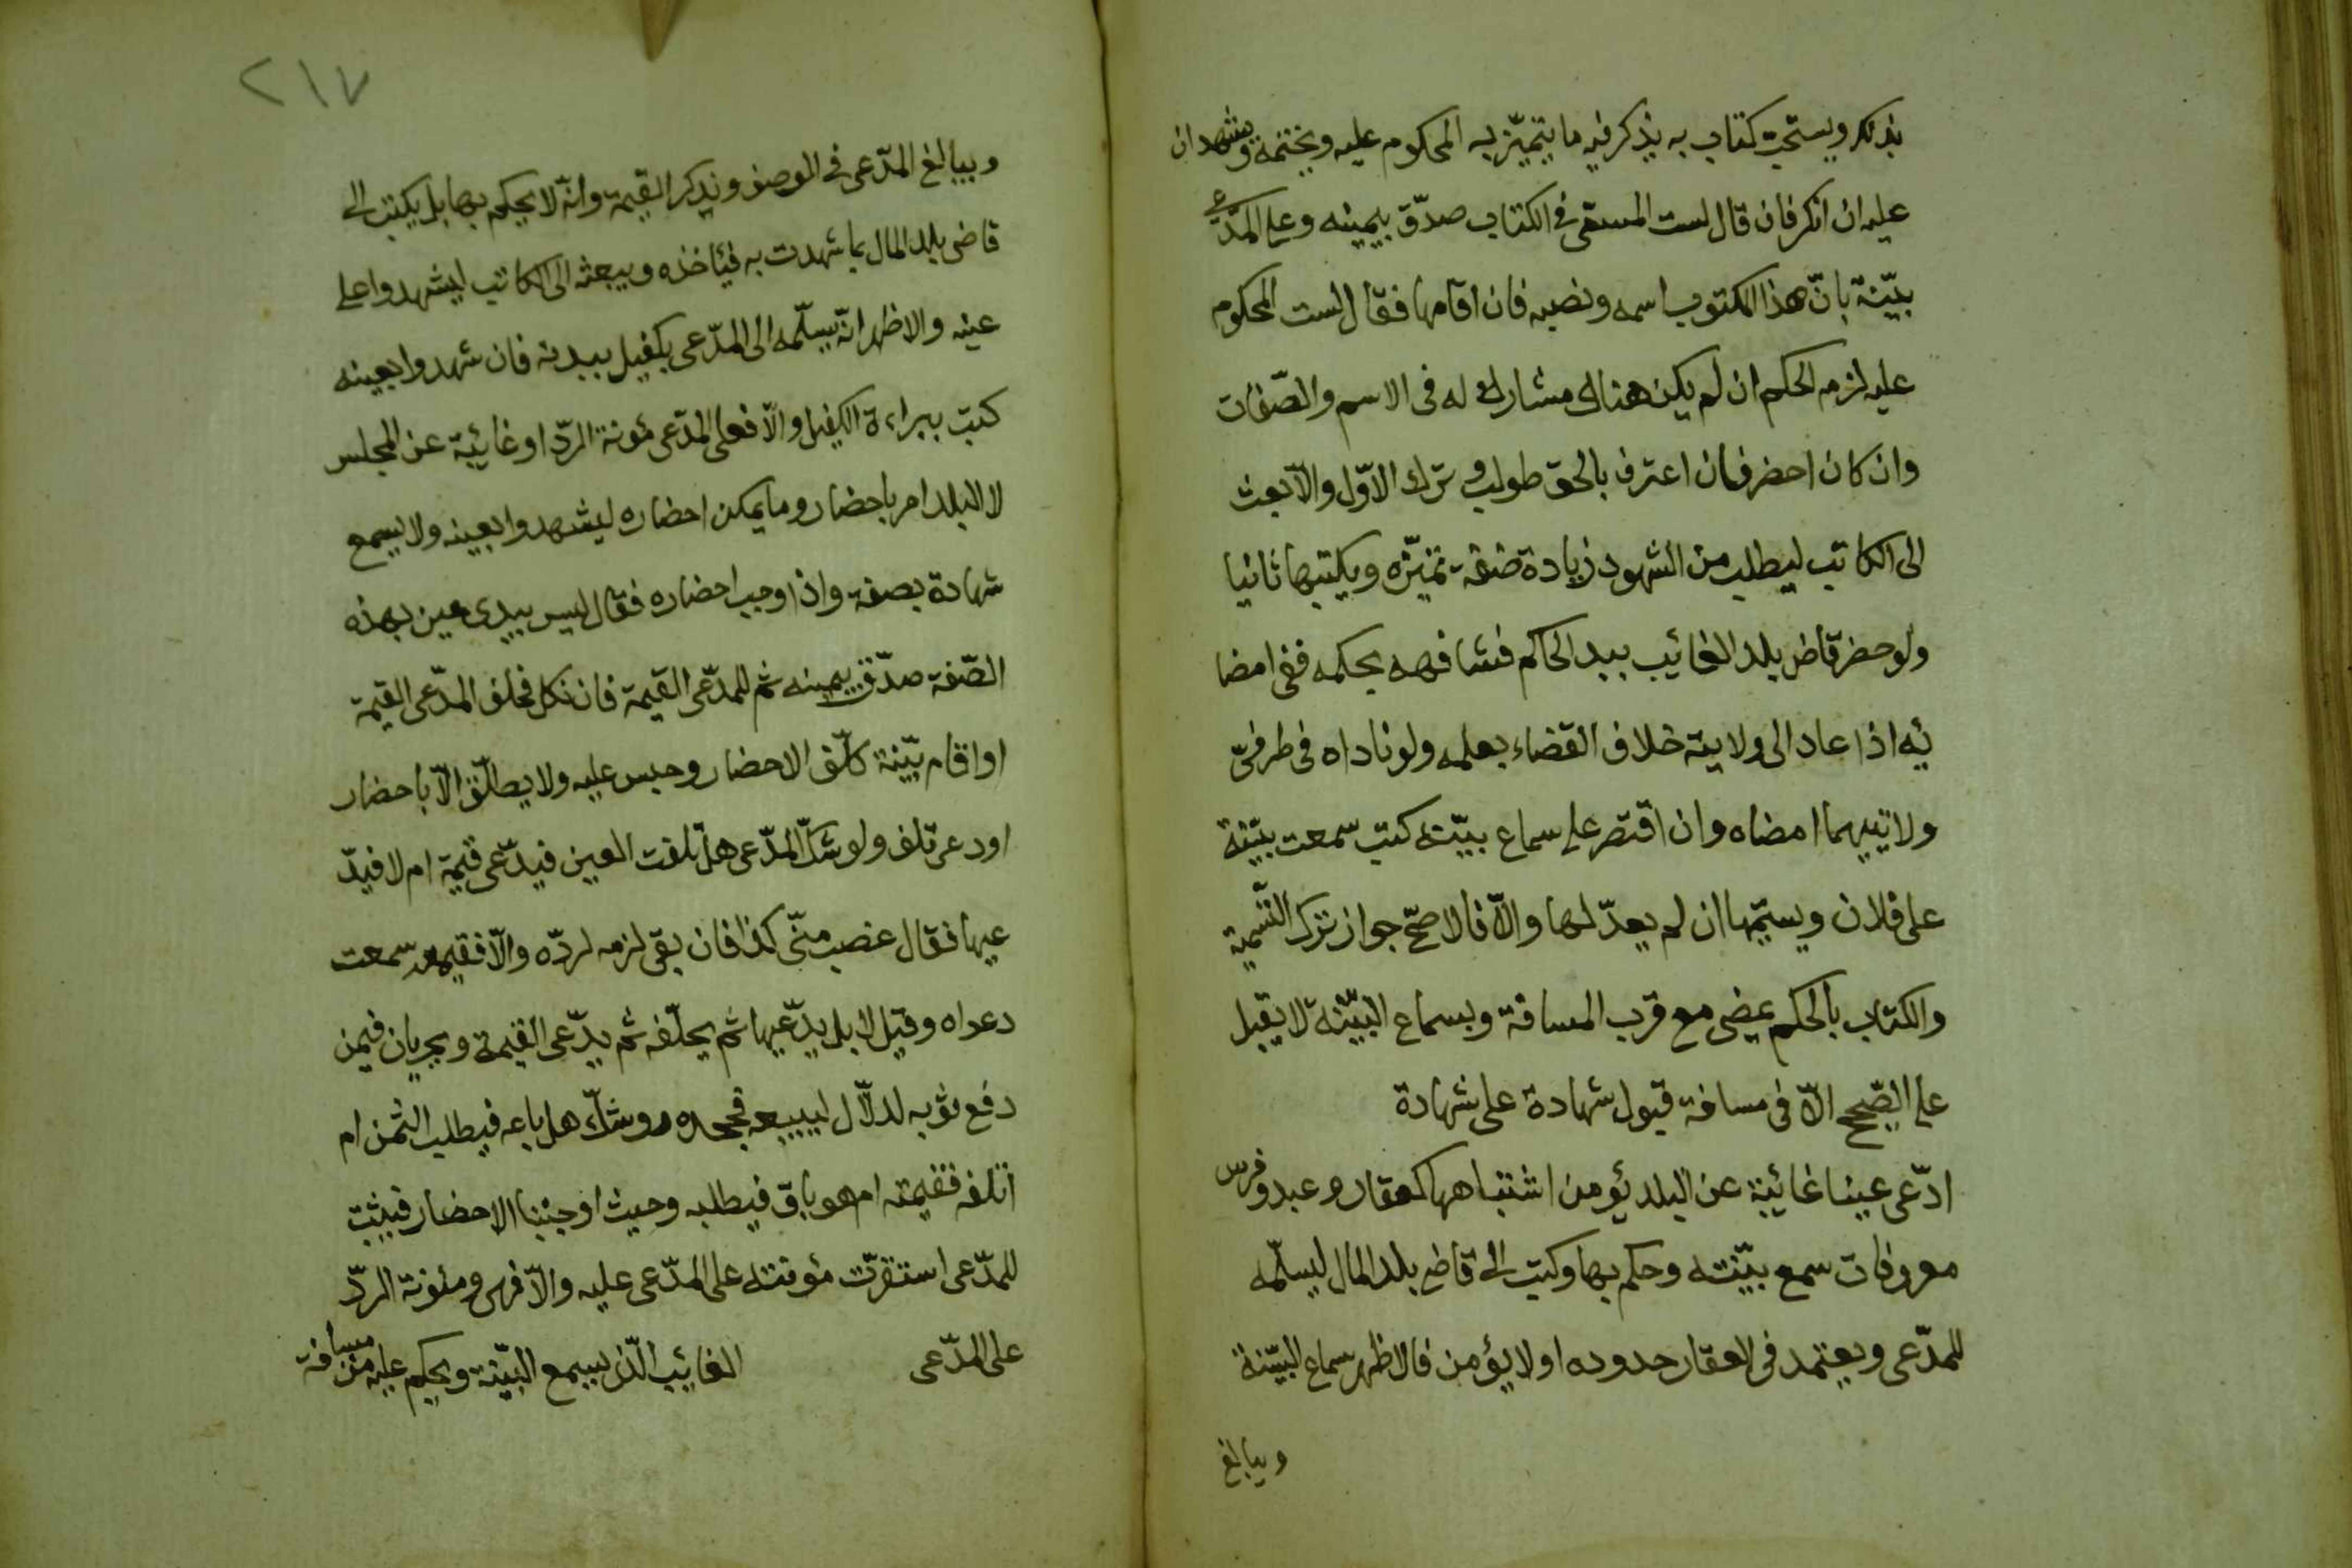 بذلك ويستحب كتاب به يذكر فيه ما يتميّز به المحكوم عليه ويختمه ويشهدان
عليه ان انكر فان قال لست المسمّى فى الكتاب صدّق بيمينه وعلى المدّعى
بيّنة بانّ هذا المكتوب اسمه ونصبه فان اقامها فقال لست المحكوم
عليه لزمه الحكم ان لم يكن هناك مشارك له فى الاسم والصّفات
وان كان احضر فان اعترف بالحق طولب وترك الاوّل والّا بعث
الى الكاتب ليطلب من الشهود زيادة صفة تميّزه ويكتبها ثانيا
ولو حضر قاض بلد الغائيب ببد الحاكم فشافهه بحكمه ففى امضا
ئه اذا عاد الى ولايته خلاف القضاء بعلمه ولو ناداه فى طرفى
ولاتيهما امضاه وان اقتصر على سماع بيّنة كتب سمعت بيّنة
على فلان ويسمّيها ان لم يعدّلها والّا فالاصحّ جواز ترك التّسمية
والكتاب بالحكم يمضى مع قرب المسافة وبسماع البيّنة لا يقبل
على الصّحيح الّا فى مسافة قبول شهادة على شهادة
ادّعى عينا غائيبة عن البلد يؤمن اشتباهها كعقار وعبد وفرس
معروفات سمع بيّنته وحكم بها وكتب الى قاضى بلد المال ليسلّمه
للمدّعى ويعتمد فى لاعقار حدوده او لا يؤمن فالاظهر سماع البيّنة
ويبالغ
٢١٧
ويبالغ المدّعى فى الوصف ويذكر القيمة وانّه لا يحكم بها بل يكتب الى
قاضى بلد المال بما شهدت به فيئاخذه ويبعثه الى الكاتب ليشهدوا على
عينه والاظهر انّه يسلّمه الى المدّعى بكفيل ببدنه فان شهدوا بعينه
كتب ببراءة الكفيل والّا فعلى المدّعى مؤنة الردّ او غائيبة عن المجلس
لا البلد امر باحضار وما يمكن احضاره ليشهدوا بعينه ولا يسمع
شهادة بصفة واذا وجب احضاره فقال ليس بيدى عين بهذه
الصّفة صدّق بيمينه ثم للمدّعى القيمة فان نكل فحلف المدّعى القيمة
او اقام بيّنة كلّف الاحضار وحبس عليه ولا يطلّق الّا باحضار
او دعى تلف ولو شكّ المدّعى هل تلفت العين فيدّعى قيمة ام لا فيدّ
عيها فقال غصب منّى كذا فان بقى لزمه لردّه والّا فقيمته سمعت
دعواه وقيل لا بل يدّعيها ثم يحلّفه ثم يدّعى القيمة ويجريان فيمن
دفع ثوبه لدلّال ليبيعه فجحده وشكّ هل باعه فيطلب الثمن ام
اتلفه فقيمته ام هو باق فيطلبه وحيث اوجبنا الاحضار فيثبت
للمدّعى استقرّت مؤنته على المدّعى عليه والّا فهى ومئونة الردّ
على المدّعى الغائيب الّذى يسمع البيّنة ويحكم عليه من مسافة